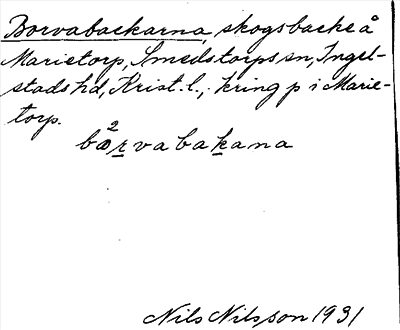 Borvabackarna, skogsbacke å
Marietorp, Smedstorps sn, Ingel-
stads hd, Krist. l., kring p i Marie-
torp.
bꝏ²r̲vabak̲ana
Nils Nilsson 1931